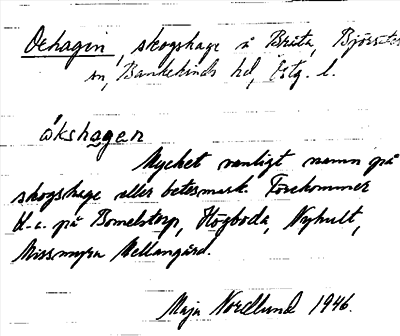 Oxhagen, skogshage å Bråta, Björsäter
sn, Bankekinds hd, Östg. l.
ókshagen
Mycket vanligt namn på
skogshage eller betesmark. Förekommer
bl. a. på Bomelstorp, Högboda, Nyhult,
Missmyra Mellangård.
Maja Nordlund 1946.